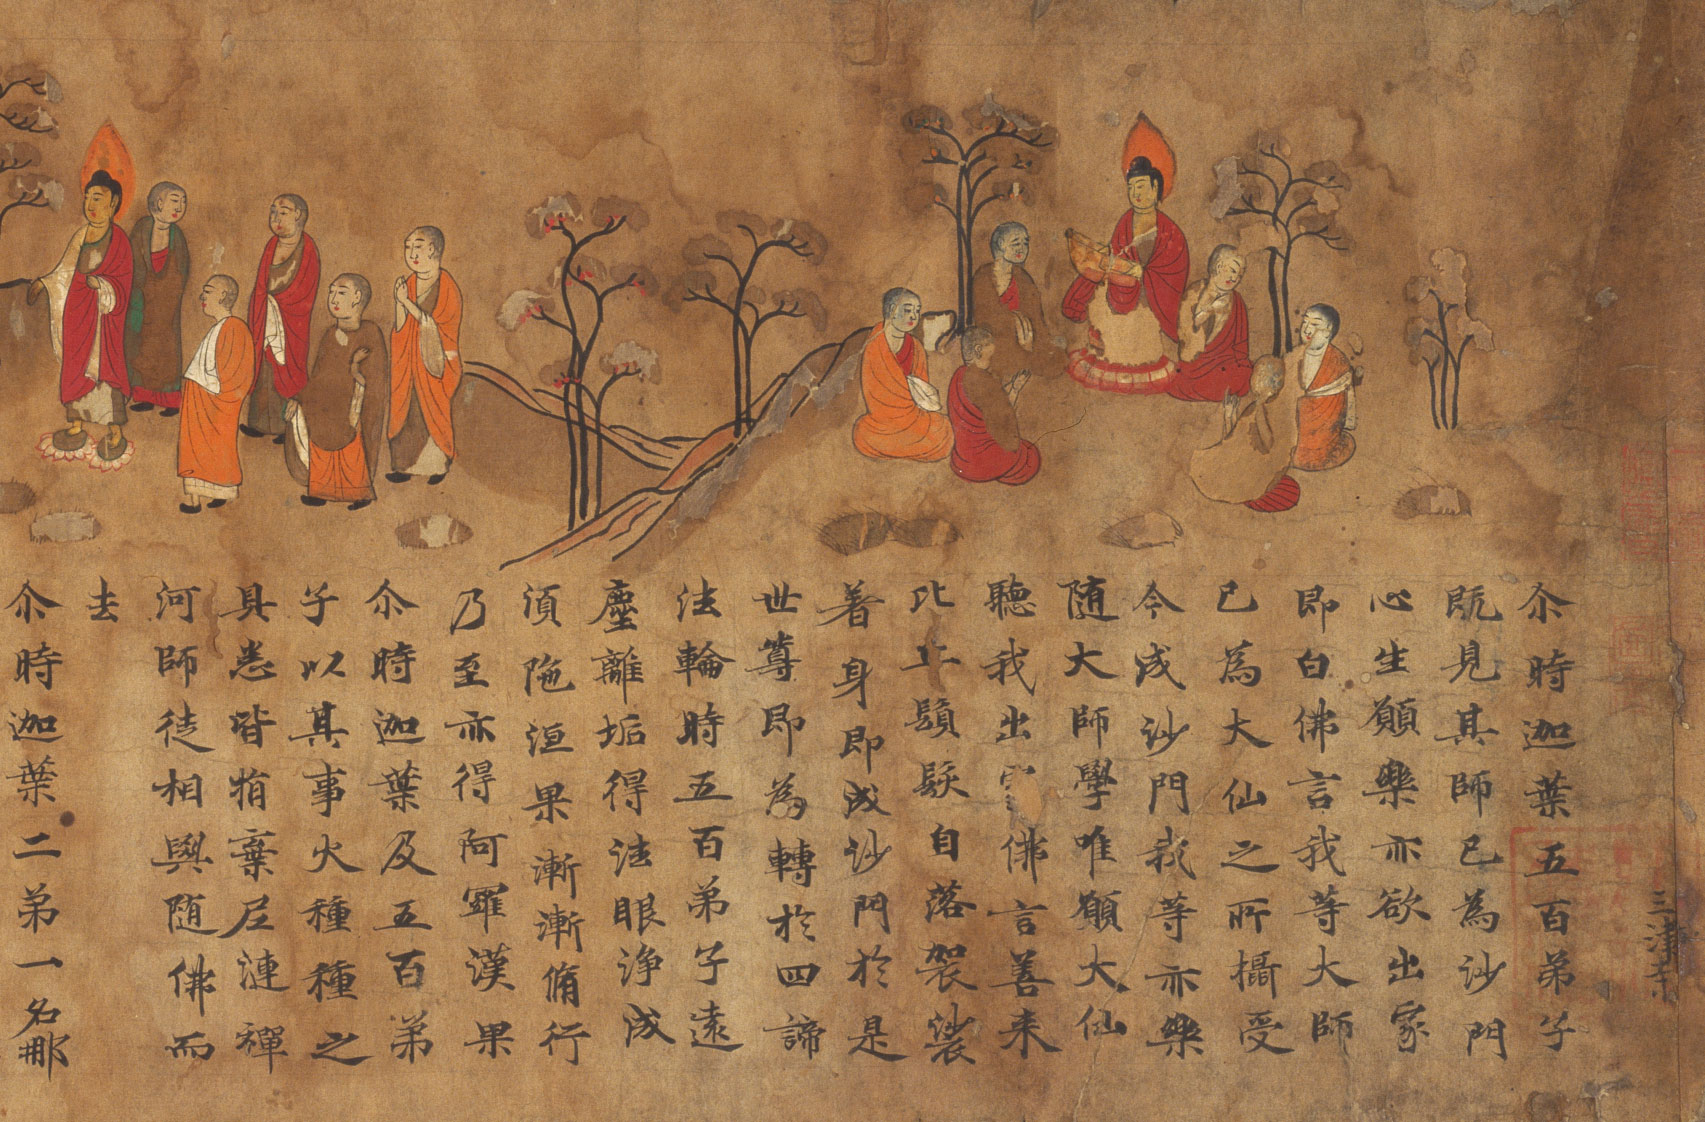 尒時迦葉五百弟子
既見其師已為沙門
心生願樂亦欲出家
即白佛言我等大師
已為大仙之所攝受
今成沙門我等亦樂
隨大師學唯願大仙
聽我出家佛言善来
比丘鬚髮自落袈裟
着身即成沙門於是
世尊即為轉於四諦
法輪時五百弟子遠
塵離垢得法眼淨成
須陁洹果漸漸脩行
乃至亦得阿羅漢果
尒時迦葉及五百弟
子以其事火種種之
具悉皆捐棄尼連禪
河師徒相與隨佛而
去
尒時迦葉二弟一名那